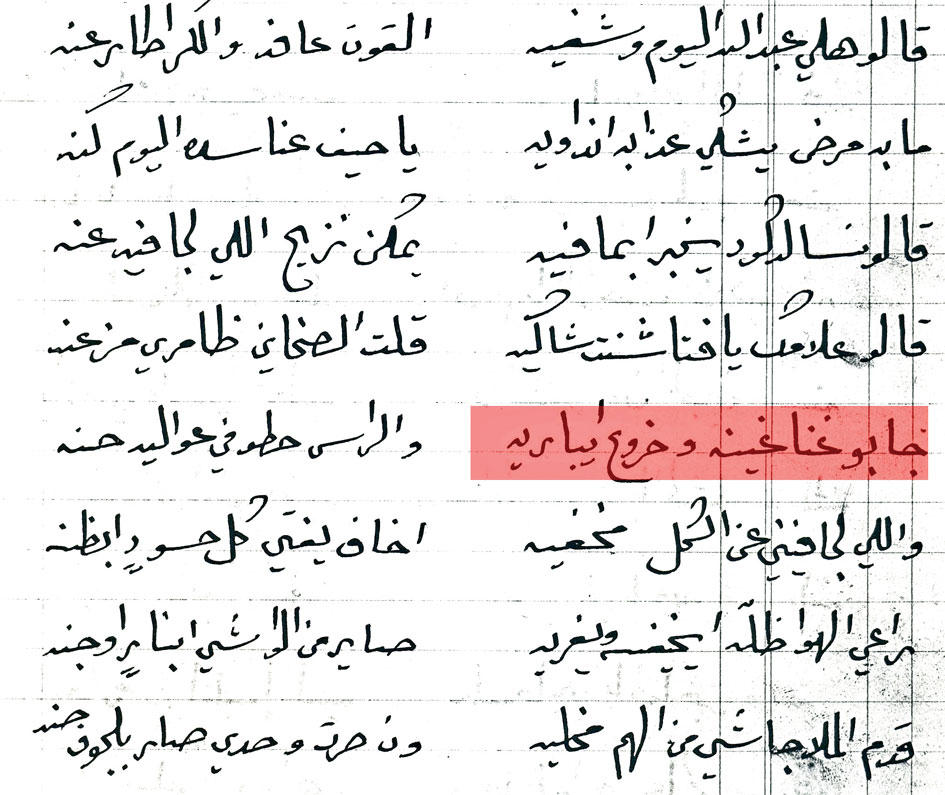 قالو هلي عبدالله اليوم وشفيه القوت عافه والكرا طاير عنه
مابه مرض يشكي عذابه انداويه ياحيف عنا سده اليوم كنه
قالو نساله كود يخبرا بمافيه يمكن نزيح اللي لجا فيه عنه
قالو علامك يافتا شنت شاكيه قلت الصخاني ظامري من عنه
جابو غناغينه وخروع ايباريه والراس حطو في عواليه حنه
واللي لجا فيني عن الكل مخفيه اخاف يفتي كل حسودٍ ابظنه
راعي الهوا ظلّه ايخيفه ويغريه صاير من الواشي ابنايرٍ وجنه
قدم الملا جاشي من الهم مخليه ون صرت وحدي صار بلجوف جنه